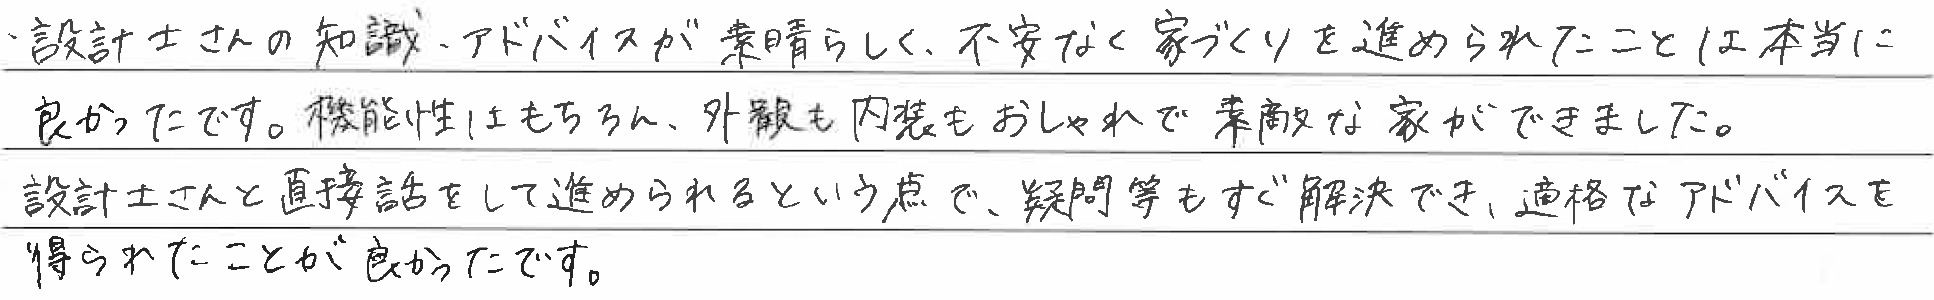 ・設計士さんの知識、アドバイスが素晴らしく、不安なく家づくりを進められたことは本当に
良かったです。機能性はもちろん、外観も内装もおしゃれで素敵な家ができました。
設計士さんと直接話をして進められるという点で、疑問等もすぐ解決でき、適格なアドバイスを
得られたことが良かったです。